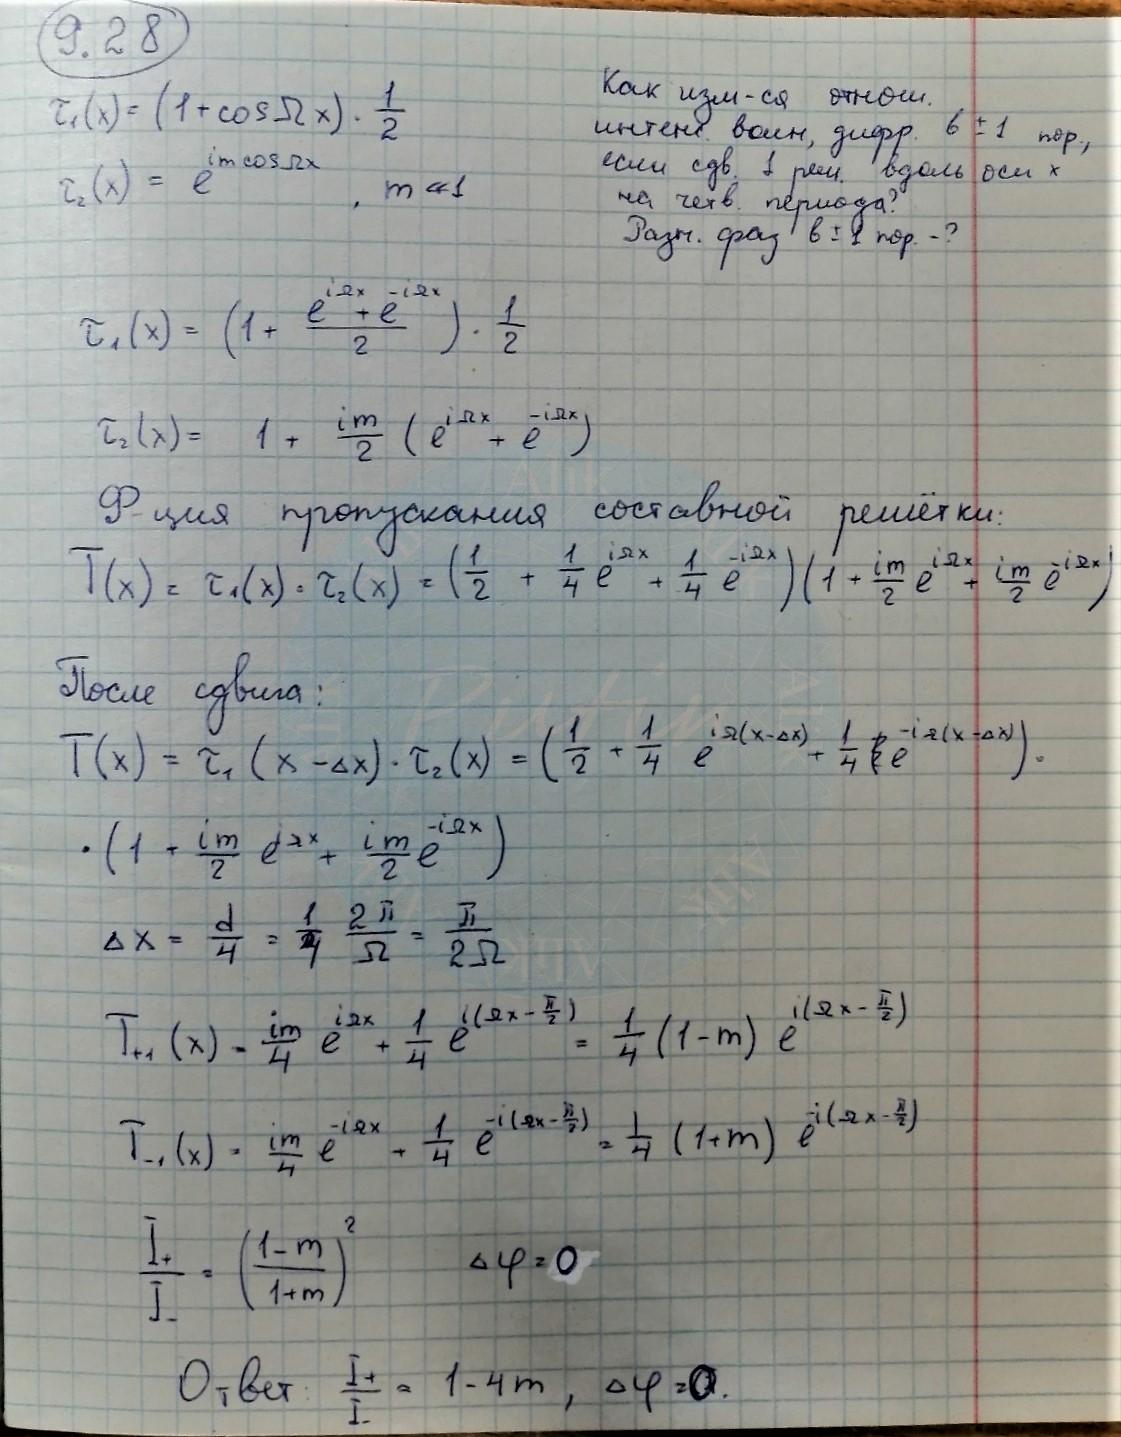 9.28
τ₁(x) = (1 + cos Ωx) · 1/2
τ₂(x) = e^{im cos Ωx}, m ≪ 1
Как изм-ся отнош.
интенс. волн, дифр. в ±1 пор.,
если сдв. 1 реш. вдоль оси x
на четв. периода?
Разн. фаз в ±1 пор. -?
τ₁(x) = (1 + (e^{iΩx} + e^{-iΩx})/2) · 1/2
τ₂(x) = 1 + im/2 (e^{iΩx} + e^{-iΩx})
Ф-ция пропускания составной решётки:
T(x) = τ₁(x) · τ₂(x) = (1/2 + 1/4 e^{iΩx} + 1/4 e^{-iΩx})(1 + im/2 e^{iΩx} + im/2 e^{-iΩx})
После сдвига:
T(x) = τ₁(x - Δx) · τ₂(x) = (1/2 + 1/4 e^{iΩ(x-Δx)} + 1/4 e^{-iΩ(x-Δx)}) ·
· (1 + im/2 e^{iΩx} + im/2 e^{-iΩx})
Δx = d/4 = 1/4 2π/Ω = π/2Ω
T₊₁(x) = im/4 e^{iΩx} + 1/4 e^{i(Ωx - π/2)} = 1/4 (1-m) e^{i(Ωx - π/2)}
T₋₁(x) = im/4 e^{-iΩx} + 1/4 e^{-i(Ωx - π/2)} = 1/4 (1+m) e^{-i(Ωx - π/2)}
I₊/I₋ = ((1-m)/(1+m))² Δφ = 0
Ответ: I₊/I₋ = 1 - 4m, Δφ = 0.